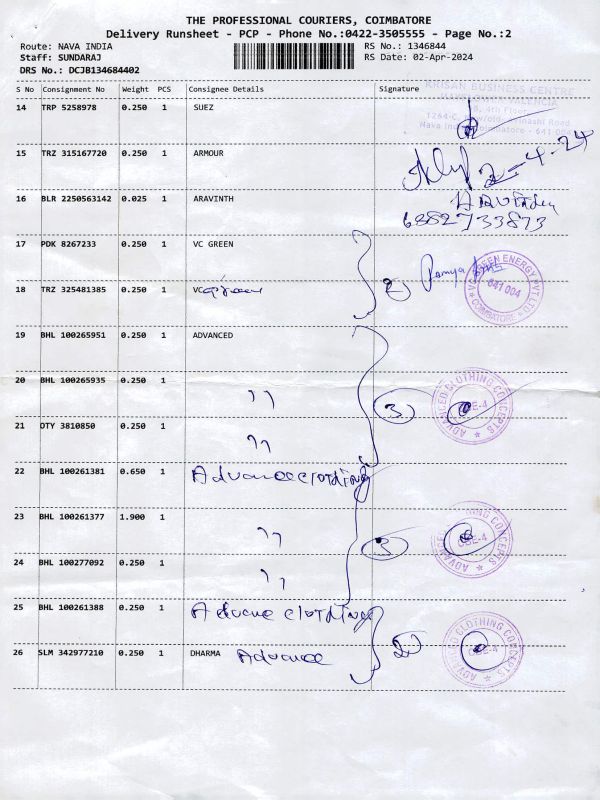 THE PROFESSIONAL COURIERS, COIMBATORE
Delivery Runsheet - PCP - Phone No.:0422-3505555 - Page No.:2
Route: NAVA INDIA RS No.: 1346844
Staff: SUNDARAJ RS Date: 02-Apr-2024
DRS No.: DCJB134684402
S No Consignment No Weight PCS Consignee Details Signature
KRISAN BUSINESS CENTRE
4th Floor
Avinashi Road
14 TRP 5258978 0.250 1 SUEZ
15 TRZ 315167720 0.250 1 ARMOUR 2-4-24
16 BLR 2250563142 0.025 1 ARAVINTH
6382733873
17 PDK 8267233 0.250 1 VC GREEN
Ramya
GREEN ENERGY PVT LTD
641 004
COIMBATORE
18 TRZ 325481385 0.250 1 VC green 2
19 BHL 100265951 0.250 1 ADVANCED
20 BHL 100265935 0.250 1 " 3
ADVANCED CLOTHING CONCEPTS
CBE-4
21 DTY 3810850 0.250 1 "
22 BHL 100261381 0.650 1 Advance clothing
23 BHL 100261377 1.900 1 " 3
ADVANCED CLOTHING CONCEPTS
CBE-4
24 BHL 100277092 0.250 1 "
25 BHL 100261388 0.250 1 Advane clothing
26 SLM 342977210 0.250 1 DHARMA Advance 2
ADVANCED CLOTHING CONCEPTS
CBE-4